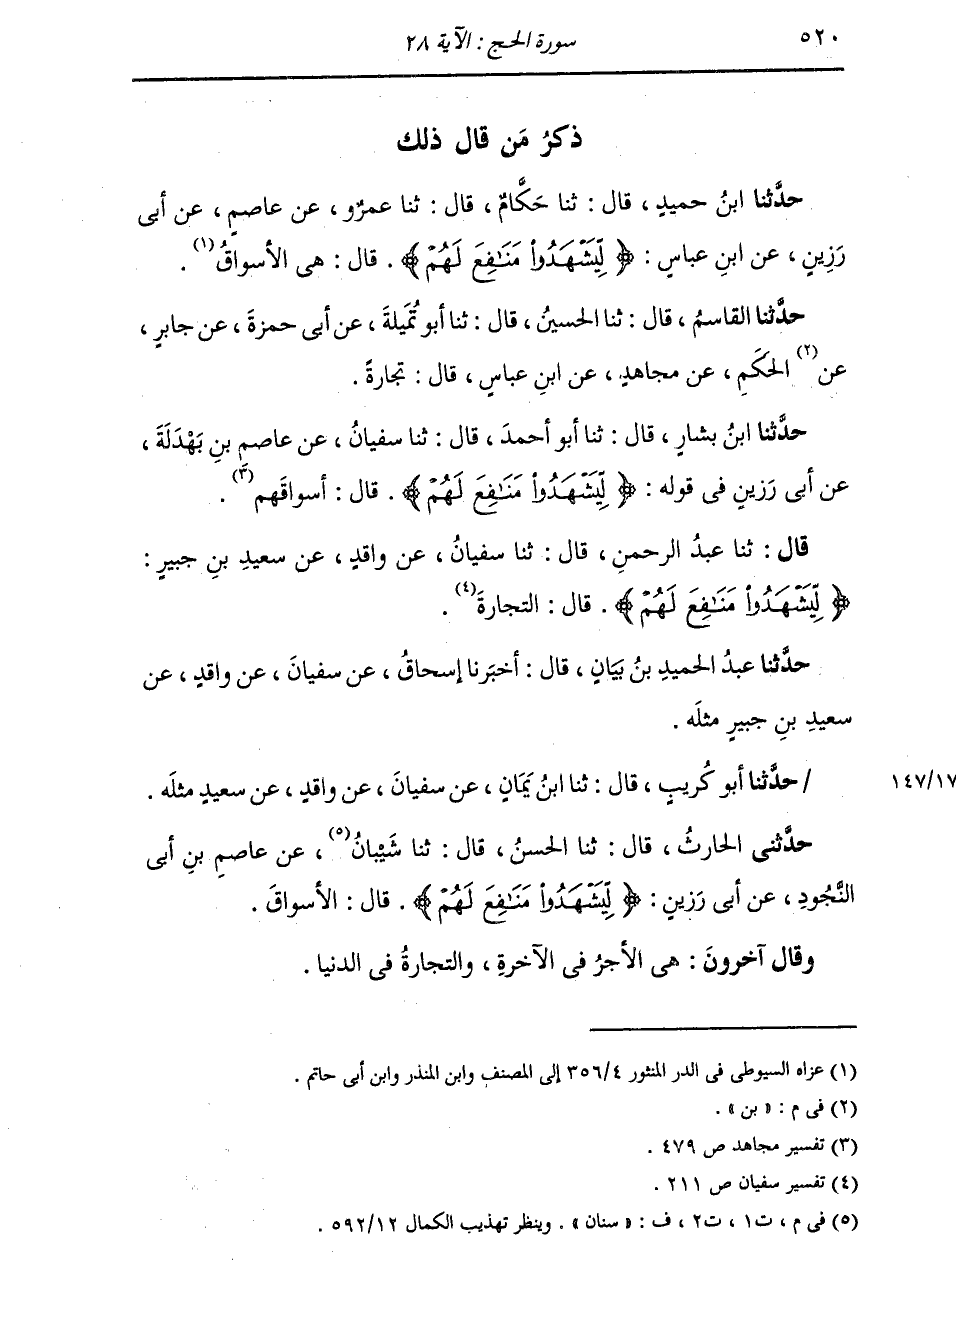 ٥٢٠
سورة الحج : الآية ٢٨
ذكرُ مَن قال ذلك
حدَّثنا ابنُ حميدٍ ، قال : ثنا حَكَّامٌ ، قال : ثنا عمرٌو ، عن عاصمٍ ، عن أبى
رَزِينٍ ، عن ابنِ عباسٍ : ﴿ لِّيَشْهَدُوا۟ مَنَـٰفِعَ لَهُمْ ﴾ . قال : هى الأسواقُ(١) .
حدَّثنا القاسمُ ، قال : ثنا الحسينُ ، قال : ثنا أبو تُمَيلةَ ، عن أبى حمزةَ ، عن جابرٍ ،
عن(٢) الحَكَمِ ، عن مجاهدٍ ، عن ابنِ عباسٍ ، قال : تجارةً .
حدَّثنا ابنُ بشارٍ ، قال : ثنا أبو أحمدَ ، قال : ثنا سفيانُ ، عن عاصمِ بنِ بَهْدَلَةَ ،
عن أبى رَزينٍ فى قوله : ﴿ لِّيَشْهَدُوا۟ مَنَـٰفِعَ لَهُمْ ﴾ . قال : أسواقَهم(٣) .
قال : ثنا عبدُ الرحمنِ ، قال : ثنا سفيانُ ، عن واقدٍ ، عن سعيدِ بنِ جبيرٍ :
﴿ لِّيَشْهَدُوا۟ مَنَـٰفِعَ لَهُمْ ﴾ . قال : التجارةَ(٤) .
حدَّثنا عبدُ الحميدِ بنُ بَيَانٍ ، قال : أخبَرنا إسحاقُ ، عن سفيانَ ، عن واقدٍ ، عن
سعيدِ بنِ جبيرٍ مثلَه .
/ حدَّثنا أبو كُريبٍ ، قال : ثنا ابنُ يَمَانٍ ، عن سفيانَ ، عن واقدٍ ، عن سعيدٍ مثلَه .
١٤٧/١٧
حدَّثنى الحارثُ ، قال : ثنا الحسنُ ، قال : ثنا شَيْبانُ(٥) ، عن عاصمِ بنِ أبى
النَّجُودِ ، عن أبى رَزينٍ : ﴿ لِّيَشْهَدُوا۟ مَنَـٰفِعَ لَهُمْ ﴾ . قال : الأسواقَ .
وقال آخرونَ : هى الأجرُ فى الآخرةِ ، والتجارةُ فى الدنيا .
(١) عزاه السيوطى فى الدر المنثور ٣٥٦/٤ إلى المصنف وابن المنذر وابن أبى حاتم .
(٢) فى م : « بن » .
(٣) تفسير مجاهد ص ٤٧٩ .
(٤) تفسير سفيان ص ٢١١ .
(٥) فى م ، ت١ ، ت٢ ، ف : « سنان » . وينظر تهذيب الكمال ٥٩٢/١٢ .